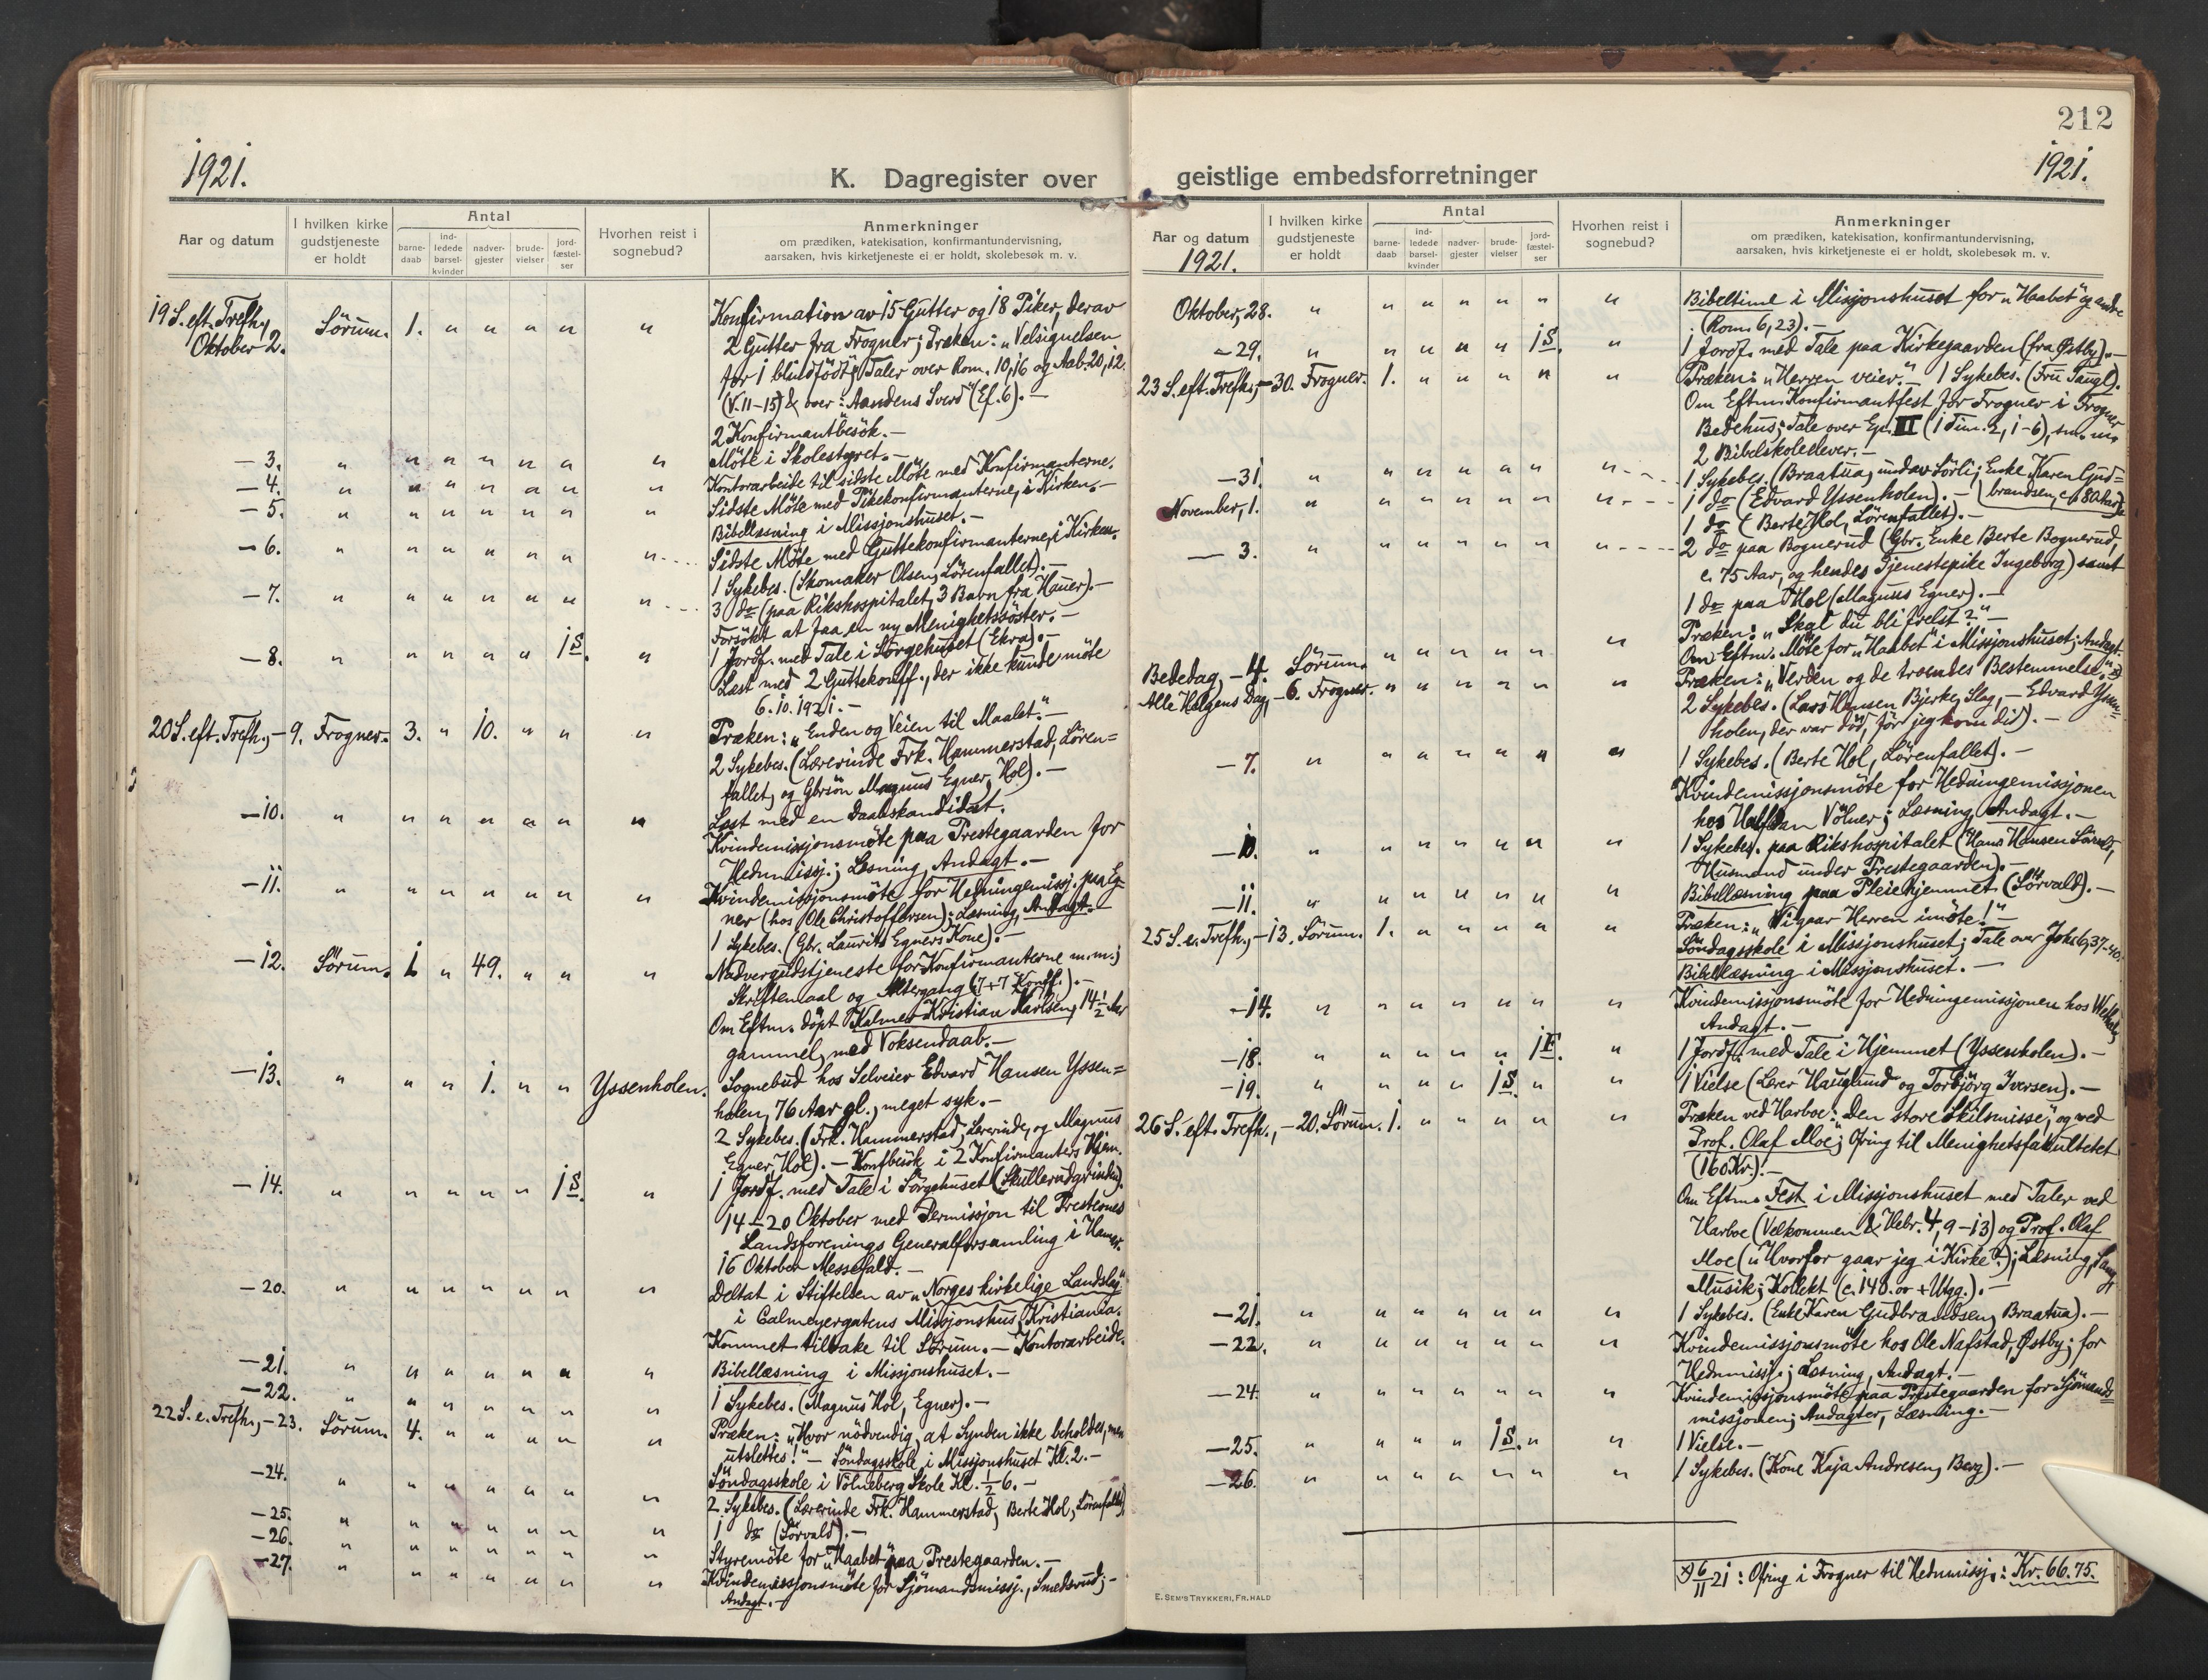 1921.
K. Dagregister over
Aar og datum
I hvilken kirke
gudstjeneste
er holdt
Antal
barne-
daab
ind-
ledede
barsel-
kvinder
nadver-
gjester
brude-
vielser
jord-
fæstel-
ser
Hvorhen reist i
sognebud?
Anmerkninger
om prædiken, katekisation, konfirmantundervisning,
aarsaken, hvis kirketjeneste ei er holdt, skolebesøk m. v.
19 S. eft. Trefh.,
Oktober 2. Sörum. 1. " " " " " Konfirmation av 15 Gutter og 18 Piker, derav
2 Gutter fra Frogner; Præken: "Velsignelsen
for 1 blindfödt"; Taler over Rom. 10,16 og Aab. 20,12.
(V. 11-15) & over: Aandens Sverd (Ef. 6). —
2 Konfirmantbesök. —
— 3. " " " " " " " Möte i Skolestyret. —
— 4. " " " " " " " Kontorarbeide til sidste Möte med Konfirmanterne.
— 5. " " " " " " " Sidste Möte med Pikekonfirmanterne, i Kirken. —
Bibellæsning i Missjonshuset. —
— 6. " " " " " " " Sidste Möte med Guttekonfirmanterne, i Kirken.
1 Sykebes. (Skomaker Olsen, Lörenfallet). —
— 7. " " " " " " " 3 do (paa Rikshospitalet, 3 Barn fra Hauer). —
Forsökt at faa en ny Menighetssöster. —
— 8. " " " " " 1 S. " 1 Jordf. med Tale i Sörgehuset (Ekra). —
Læst med 2 Guttekonff., der ikke kunde möte
6.10.1921. —
20 S. eft. Trefh., — 9. Frogner. 3. " 10. " " " Præken: "Enden og Veien til Maalet." —
2 Sykebes. (Lærerinde Frk. Hammerstad, Lören=
fallet, og Gbrsön Magnus Egner, Hol). —
— 10. " " " " " " " Læst med en Daabskandidat.
Kvindemissjonsmöte paa Prestegaarden for
Hednmissj.; Læsning, Andagt. —
— 11. " " " " " " " Kvindemissjonsmöte for Hedningemissj. paa Eg=
ner (hos Ole Christoffersen); Læsning, Andagt. —
1 Sykebes. (Gbr. Laurits Egners Kone). —
— 12. Sörum. 1. " 49. " " " Nadvergudstjeneste for Konfirmanterne m.m.;
Skriftemaal og Altergang (7+7 Konff.). —
Om Eftm. döpt Kalmer Kristian Karlsen, 14 1/2 Aar
gammel, med Voksendaab. —
— 13. " " " 1. " " Yssenholen. Sognebud hos Selveier Edvard Hansen Yssen=
holen, 76 Aar gl., meget syk. —
2 Sykebes. (Frk. Hammerstad, Lærerinde, og Magnus
Egner, Hol). — Konfbesök i 2 Konfirmanters Hjem.
— 14. " " " " " 1 S. " 1 Jordf. med Tale i Sörgehuset (Skullerudgrinden).
14 — 20 Oktober med Permissjon til Presternes
Landsforenings Generalforsamling i Hamar.
16 Oktober Messefald. —
— 20. " " " " " " " Deltat i Stiftelsen av "Norges kirkelige Landslag"
i Calmeyergatens Missjonshus, Kristiania.
Kommet tilbake til Sörum. — Kontorarbeide.
— 21. " " " " " " " Bibellæsning i Missjonshuset. —
— 22. " " " " " " " 1 Sykebes. (Magnus Hol, Egner). —
22 S. e. Trefh., — 23. Sörum. 4. " " " " " Præken: "Hvor nödvendig, at Synden ikke beholdes, men
utslettes!" — Söndagsskole i Missjonshuset Kl. 2. —
Söndagsskole i Völneberg Skole Kl. 1/2 6. —
— 24. " " " " " " " 2 Sykebes. (Lærerinde Frk. Hammerstad, Berte Hol, Lörenfallet).
— 25. " " " " " " " 1 do (Sörvald). —
— 26. " " " " " " " Styremöte for "Haabet" paa Prestegaarden. —
— 27. " " " " " " " Kvindemissjonsmöte for Sjömandsmissj., Smedsrud; —
Andagt. —
212
1921.
geistlige embedsforretninger
Aar og datum
1921.
I hvilken kirke
gudstjeneste
er holdt
Antal
barne-
daab
ind-
ledede
barsel-
kvinder
nadver-
gjester
brude-
vielser
jord-
fæstel-
ser
Hvorhen reist i
sognebud?
Anmerkninger
om prædiken, katekisation, konfirmantundervisning,
aarsaken, hvis kirketjeneste ei er holdt, skolebesøk m. v.
Oktober, 28. " " " " " " " Bibeltime i Missjonshuset for "Haabet" og andre
(Rom. 6,23). —
— 29. " " " " " 1 S. " 1 Jordf. med Tale paa Kirkegaarden (fra Østby). —
23 S. eft. Trefh., — 30. Frogner. 1. " " " " " Præken: "Herren veier." — 1 Sykebes. (Fru Taugl).
Om Eftm. Konfirmantfest for Frogner i Frogner
Bedehus; Tale over Ep. II (1 Tim. 2, 1-6), sm. m.
2 Bibelskoleelever. —
— 31. " " " " " " " 1 Sykebes. (Braatua, undav Sörli; Enke Karen Gud=
brandsen, c. 80 Aar).
November, 1. " " " " " " " 1 do (Edvard Yssenholen). —
1 do (Berte Hol, Lörenfallet). —
— 3. " " " " " " " 2 do paa Bognerud (Gbr. Enke Berte Bognerud,
c. 75 Aar, og hendes Tjenestepike Ingeborg) samt
1 do paa Hol (Magnus Egner). —
Bededag, — 4. Sörum. " " " " " " Præken: "Skal du bli frelst?" —
Om Eftm. Möte for "Haabet" i Missjonshuset; Andagt.
Alle Helgens Dag, — 6. Frogner. " " " " " " Præken: "Verden og de troendes Bestemmelse." x)
2 Sykebes. (Lars Hansen Bjerke, Slag, — Edvard Yssen=
holen, der var död, för jeg kom did). —
— 7. " " " " " " " 1 Sykebes. (Berte Hol, Lörenfallet). —
Kvindemissjonsmöte for Hedningemissjonen
hos Halfdan Völner; Læsning, Andagt. —
— 10. " " " " " " " 1 Sykebes. paa Rikshospitalet (Hans Hansen Sörvald,
Husmand under Prestegaarden). —
— 11. " " " " " " " Bibellæsning paa Pleiehjemmet (Sörvald). —
25 S. e. Trefh., — 13. Sörum. 1. " " " " " Præken: "Vi gaar Herren imöte!" —
Söndagsskole i Missjonshuset; Tale over Joh. 6,37-40.
Bibellæsning i Missjonshuset. —
— 14. " " " " " " " Kvindemissjonsmöte for Hedningemissjonen hos
Andagt. —
— 18. " " " " " 1 F. " 1 Jordf. med Tale i Hjemmet (Yssenholen). —
— 19. " " " " 1 S. " " 1 Vielse (Lærer Hauglund og Torbjörg Iversen). —
26 S. eft. Trefh., — 20. Sörum. 1. " " " " " Præken ved Harboe: "Den store Skilsmisse," og ved
Prof. Olaf Moe; Ofring til Menighetsfakultetet
(160 Kr.). —
Om Eftm. Fest i Missjonshuset med Taler ved
Harboe (Velkommen & Hebr. 4, 9-13) og Prof. Olaf
Moe ("Hvorfor gaar jeg i Kirke?"); Læsning, Sang,
Musik; Kollekt (c. 140.00 + Utgg.). —
— 21. " " " " " " " 1 Sykebes. (Enke Karen Gudbrandsen, Braatua). —
— 22. " " " " " " " Kvindemissjonsmöte hos Ole Nafstad, Østby; for
Hednmissj.; Læsning, Andagt. —
— 24. " " " " " " " Kvindemissjonsmöte paa Prestegaarden for Sjömands=
missjonen; Andagter, Læsning. —
— 25. " " " " 1 S. " " 1 Vielse. —
— 26. " " " " " " " 1 Sykebes. (Kone Kaja Andresen, Berg). —
x) 6/11 21: Ofring i Frogner til Hednmissj.: Kr. 66.75.
E. SEM'S TRYKKERI, FR.HALD